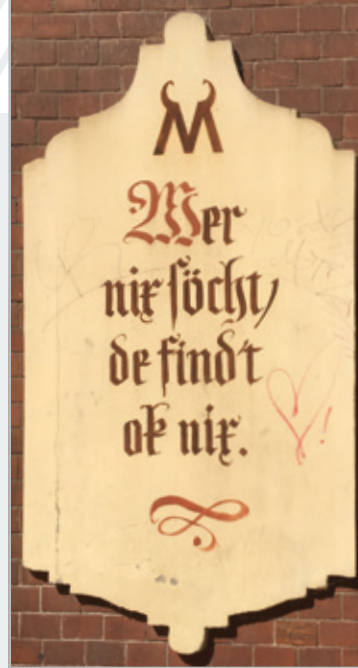 M
Wer
nix söcht,
de find't
ok nix.